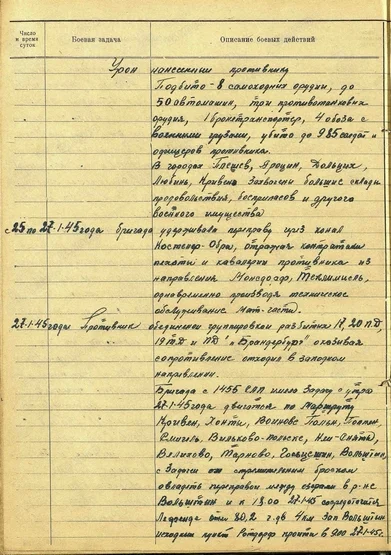 Число
и время
суток
Боевая задача
Описание боевых действий
Урон нанесенный противнику
Подбито - 8 самоходных орудий, до
50 автомашин, три противотанковых
орудия, 1 бронетранспортер, 4 обоза с
военными грузами, убито до 985 солдат и
офицеров противника.
В городах Плешев, Яроцин, Дольцих,
Любинь, Кривень захвачены большие склады
продовольствия, боеприпасов и другого
военного имущества
с 25 по 27-1-45 года бригада удерживала переправу через канал
Костефер-Обра, отражая контратаки
пехоты и кавалерии противника из
направления
одновременно производя техническое
обслуживание мат-части.
27-1-45 года Противник обединенен группировкой разбитых 17, 20 П.Д,
19 тд и ПД "Бранденбург" оказывая
сопротивление отходил в западном
направлении.
Бригада с 1455 САП имела задачу "утро
27-1-45 года двигатся по маршруту
Кривен,
Шмигель, Вильково-польске,
Велихово, Тарново, Вольштын,
с задачей стремительным броском
овладеть переправой между озерами в р-не
Вольштын и к 18.00 27-1-45 сосредоточится
80,2 4 км зап Вольштын
исходный пункт пройти в 9.00 27-1-45г.